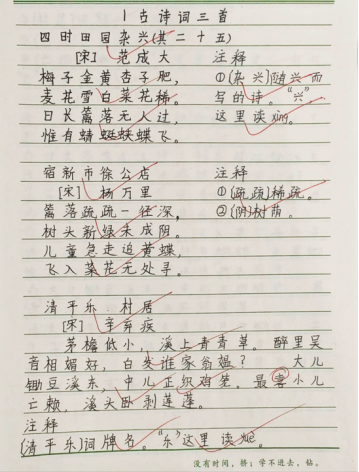 1 古诗词三首
四时田园杂兴(其二十五)
[宋] 范成大 注释
梅子金黄杏子肥, ①(杂兴)随兴而
麦花雪白菜花稀。 写的诗。“兴”,
日长篱落无人过, 这里读xìng。
惟有蜻蜓蛱蝶飞。
宿新市徐公店 注释
[宋] 杨万里 ①(疏疏)稀疏。
篱落疏疏一径深, ②(阴)树荫。
树头新绿未成阴。
儿童急走追黄蝶,
飞入菜花无处寻。
清平乐·村居
[宋] 辛弃疾
茅檐低小,溪上青青草。醉里吴
音相媚好,白发谁家翁媪? 大儿
锄豆溪东,中儿正织鸡笼。最喜小儿
亡赖,溪头卧剥莲蓬。
注释
(清平乐)词牌名。“乐”这里读yuè。
没有时间,挤;学不进去,钻。